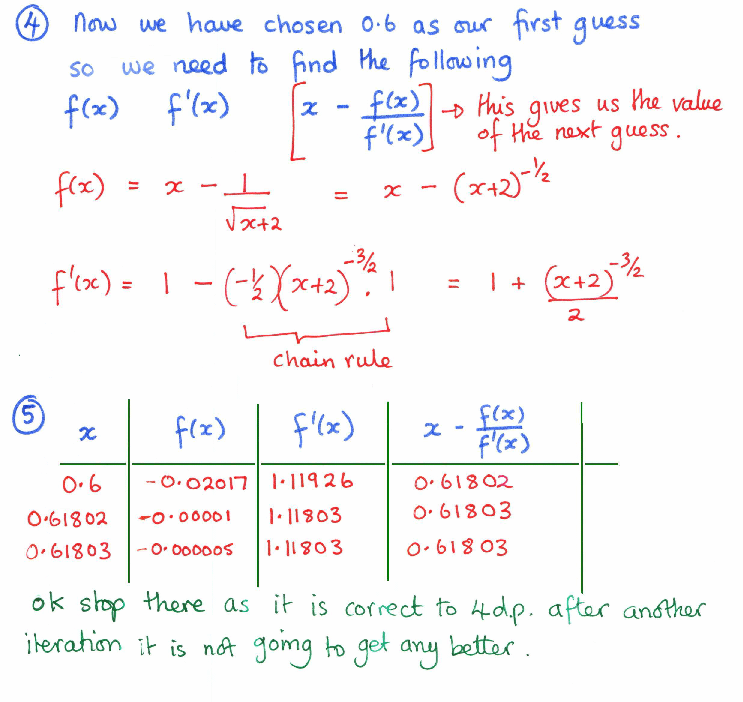 ④ Now we have chosen 0.6 as our first guess
so we need to find the following
f(x) f'(x) [x - f(x)/f'(x)] → this gives us the value
of the next guess.
f(x) = x - 1/√x+2 = x - (x+2)^-½
f'(x) = 1 - (-½)(x+2)^-3/2 . 1 = 1 + (x+2)^-3/2 / 2
chain rule
⑤ x f(x) f'(x) x - f(x)/f'(x)
0.6 -0.02017 1.11926 0.61802
0.61802 -0.00001 1.11803 0.61803
0.61803 -0.000005 1.11803 0.61803
ok stop there as it is correct to 4d.p. after another
iteration it is not going to get any better.